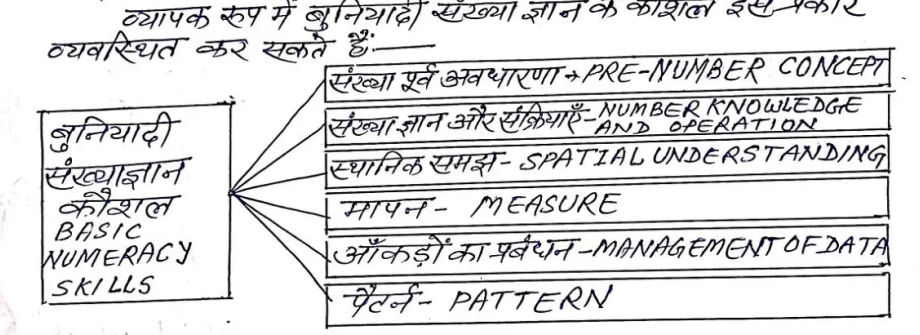 व्यापक रूप में बुनियादी संख्या ज्ञान के कौशल इस प्रकार
व्यवस्थित कर सकते हैं:—
बुनियादी
संख्याज्ञान
कौशल
BASIC
NUMERACY
SKILLS
संख्या पूर्व अवधारणा → PRE-NUMBER CONCEPT
संख्या ज्ञान और संक्रियाएँ - NUMBER KNOWLEDGE
AND OPERATION
स्थानिक समझ - SPATIAL UNDERSTANDING
मापन - MEASURE
आँकड़ों का प्रबंधन - MANAGEMENT OF DATA
पैटर्न - PATTERN